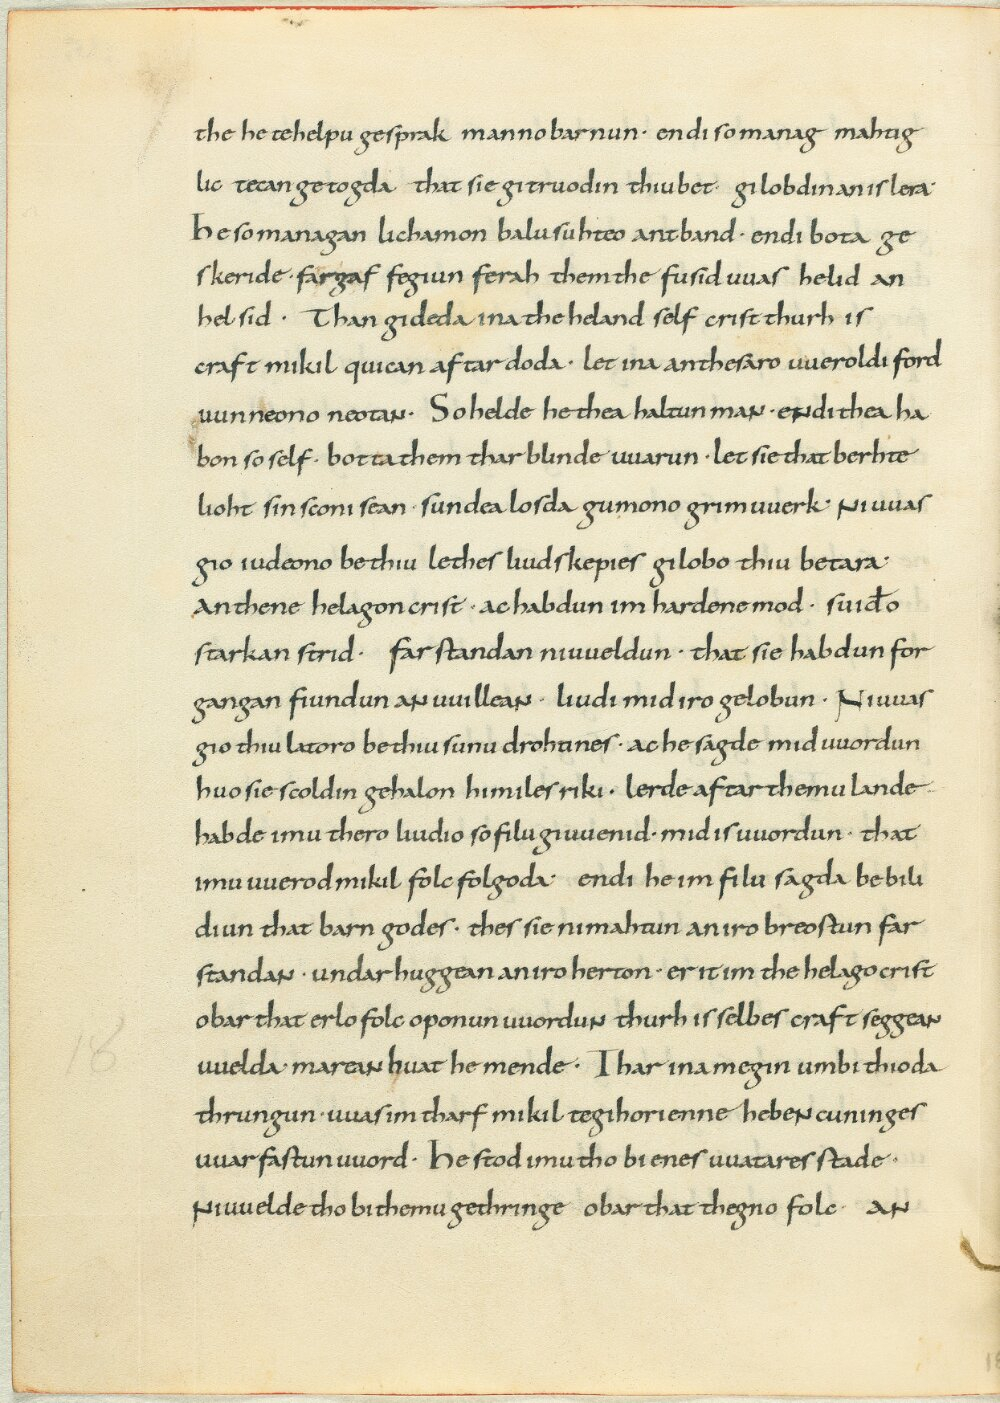 the he tehelpu gesprak mannobarnun· endi so manag mahtig
lic tecan getogda that sie gitruodin thiu bet· gilobdin an is lera·
he so managan lichamon balusuhteo antband· endi bota ge
skeride· fargaf fegiun ferah themthe fusid uuas helid an
helsid · Than gideda ina the heland self crist thurh is
craft mikil quican aftar doda · let ina an thesaro uueroldi ford
uunneono neotan· So helde he thea haltun man· endi thea ha
bon so self· botta them thar blinde uuarun · let sie that berhte
lioht sinsconi sean· sundea losda gumono grimuuerk· Ni uuas
gio iudeono bethiu lethes liudskepies gilobo thiu betara·
an thene helagon crist · ac habdun im hardene mod · suiđo
starkan strid · farstandan ni uueldun · that sie habdun for
gangan fiundun an uuillean · liudi mid iro gelobun · Ni uuas
gio thiu latoro bethiu sunu drohtines · ac he sagde mid uuordun
huo sie scoldin gehalon himiles riki · lerde aftar themu lande
habde imu thero liudio so filu giuuenid· mid is uuordun · that
imu uuerod mikil folc folgoda· endi he im filu sagda be bili
diun that barn godes · thes sie ni mahtun an iro breostun far
standan · undarhuggean an iro herton· er it im the helago crist
obar that erlo folc oponun uuordun thurh is selbes craft seggean
uuelda· marean huat he mende · Thar ina megin umbi thioda
thrungun· uuas im tharf mikil te gihorienne heben cuninges
uuarfastun uuord· he stod imu tho bi enes uuatares stade ·
Ni uuelde tho bi themu gethringe obar that thegno folc · an